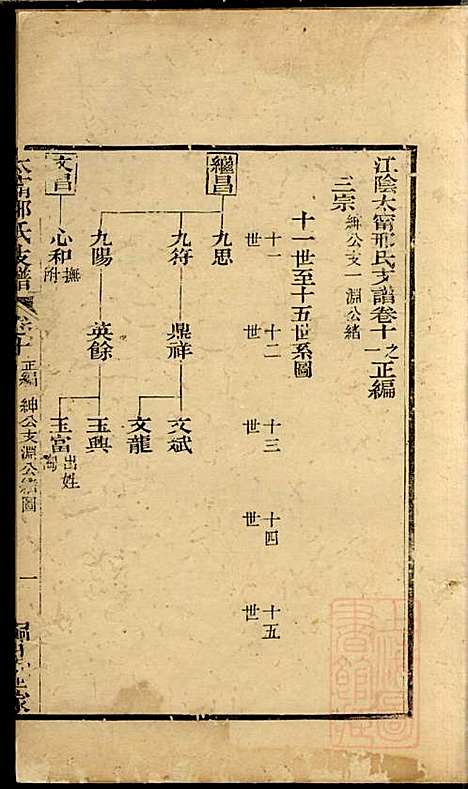 江陰太甯邢氏支譜卷十之一正編
三宗 紳公支一 淵公緒
十一世至十五世系圖
十一世
十二世
十三世
十四世
十五世
繼昌
九思
九符
鼎祥
文斌
文龍
九陽
英餘
玉興
玉富 出姓
文昌
心和 撫附
太甯邢氏支譜
卷十 正編 紳公支淵公緒圖 一